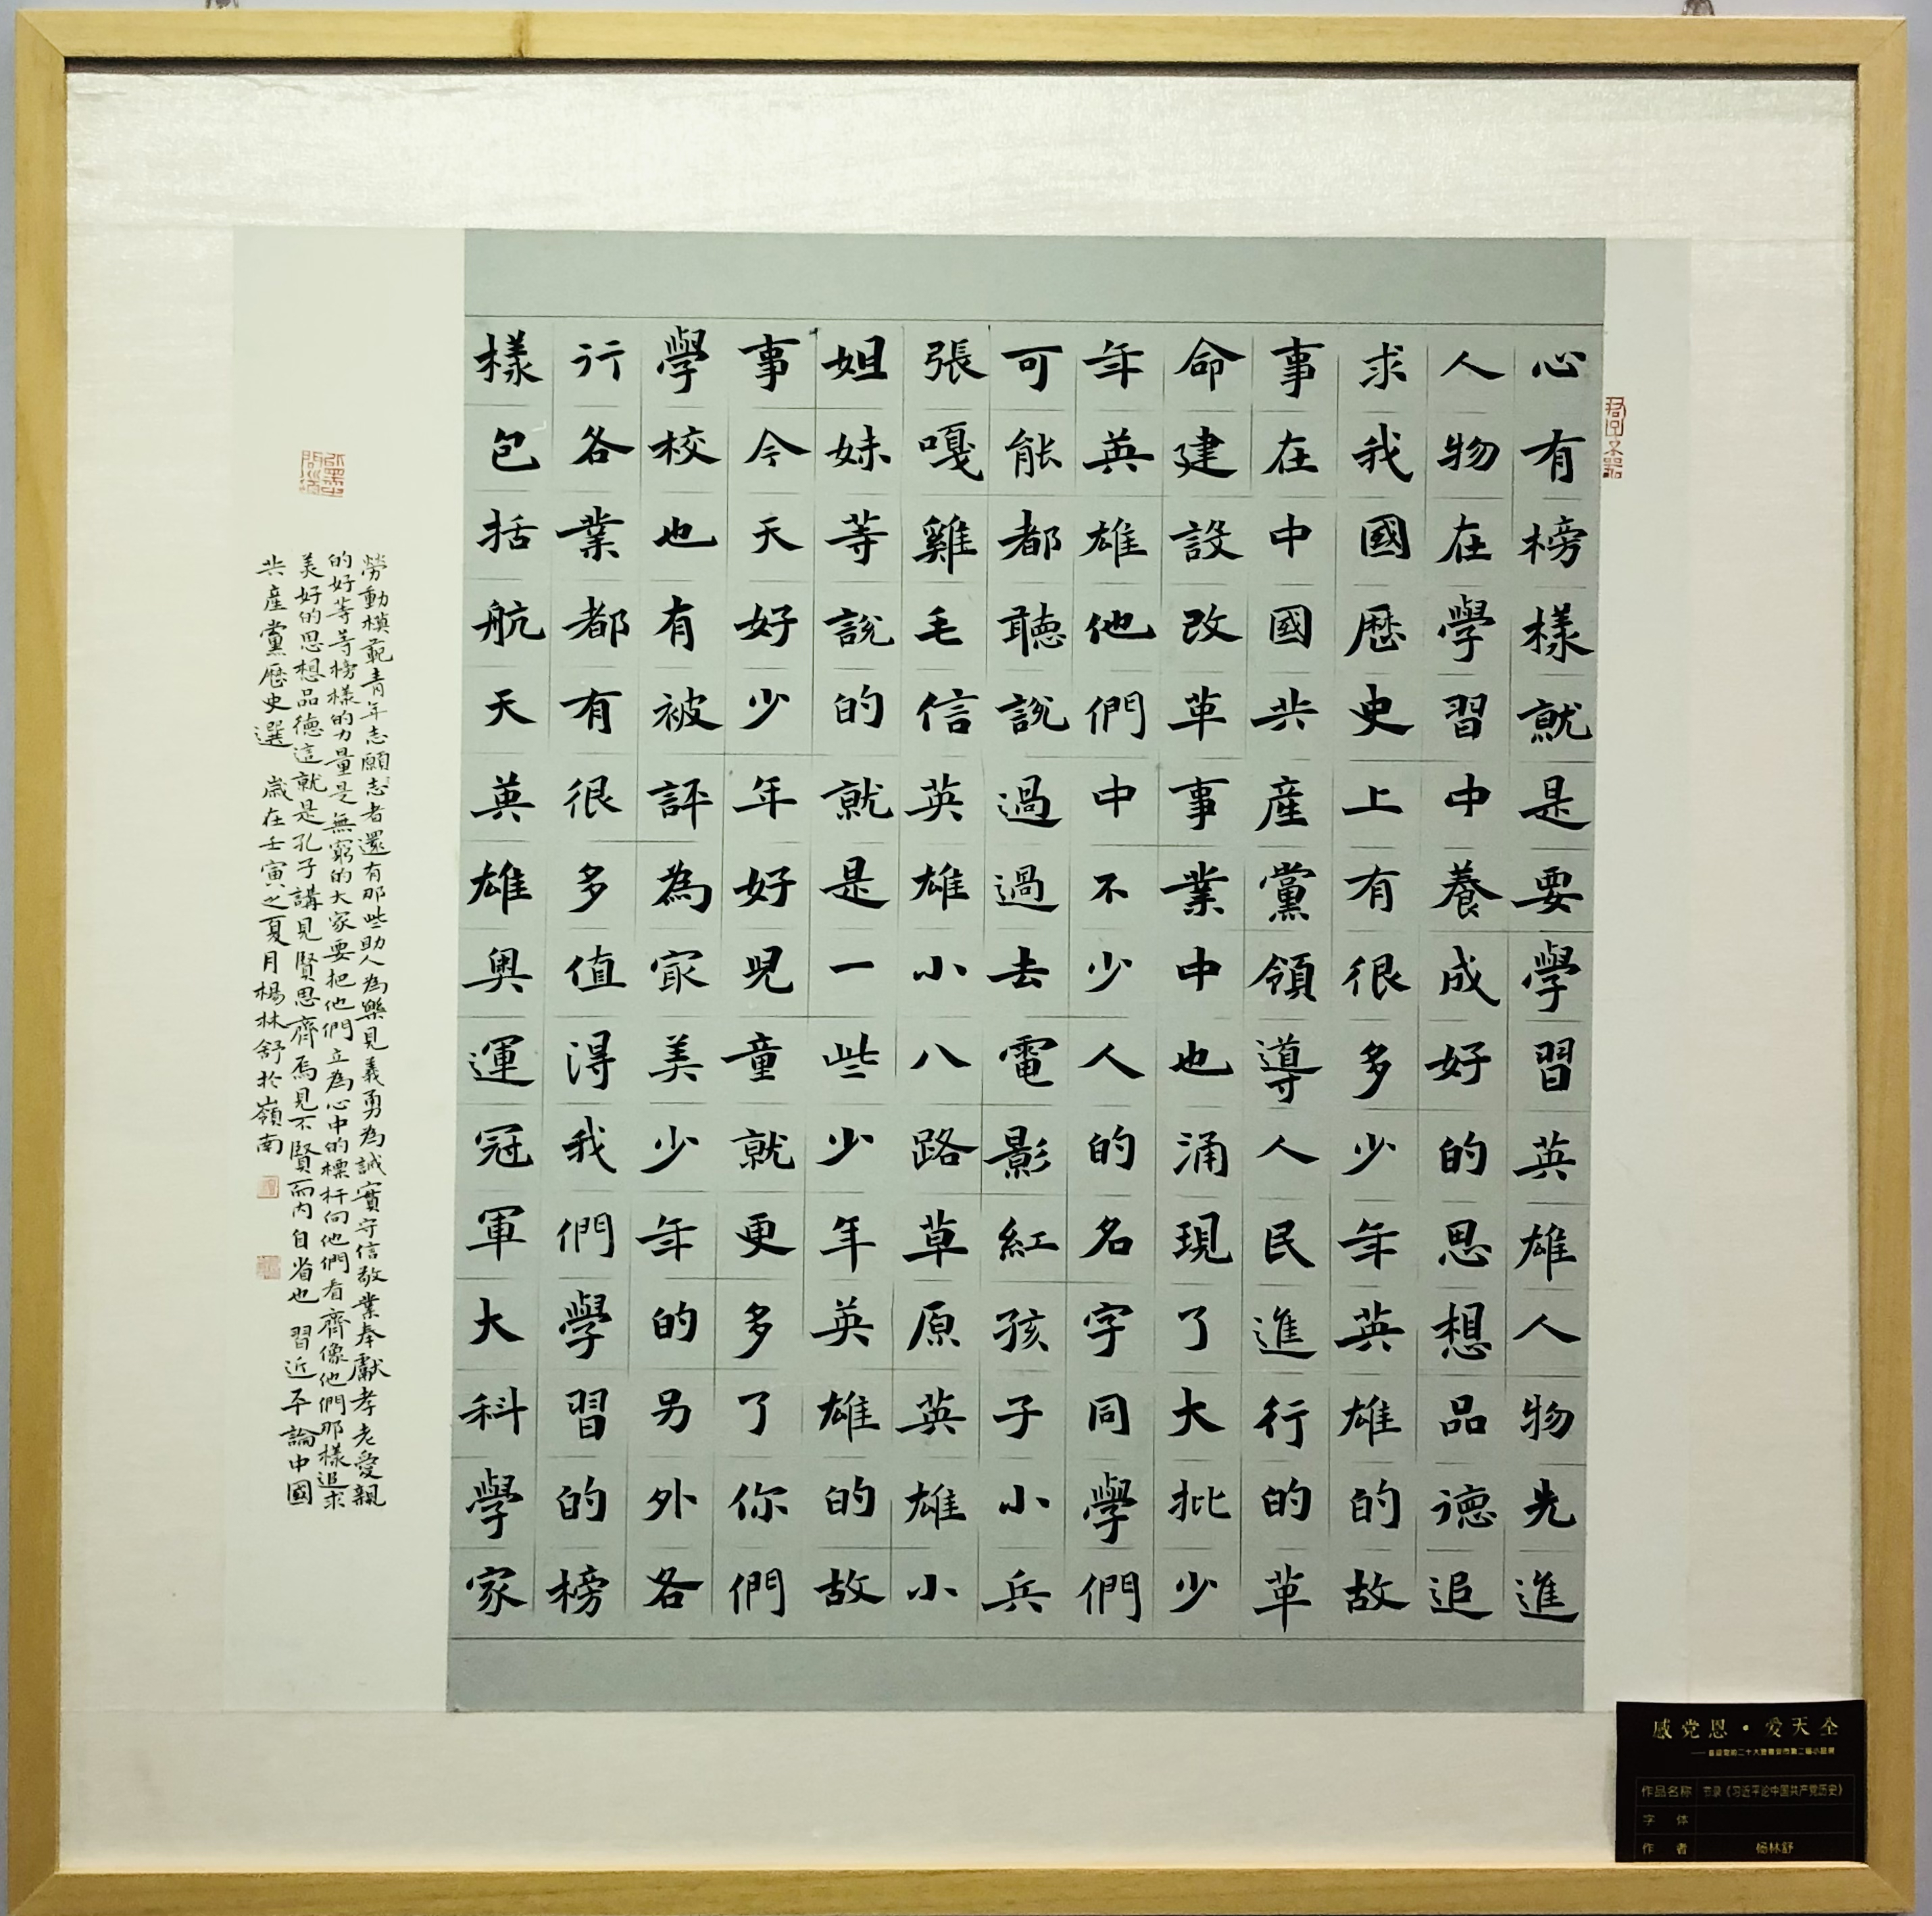 心有榜樣就是要學習英雄人物先進
人物在學習中養成好的思想品德追
求我國歷史上有很多少年英雄的故
事在中國共產黨領導人民進行的革
命建設改革事業中也涌現了大批少
年英雄他們中不少人的名字同學們
可能都聽說過過去電影紅孩子小兵
張嘎雞毛信英雄小八路草原英雄小
姐妹等說的就是一些少年英雄的故
事今天好少年好兒童就更多了你們
學校也有被評為最美少年的另外各
行各業都有很多值得我們學習的榜
樣包括航天英雄奧運冠軍大科學家
勞動模範青年志願志者還有那些助人為樂見義勇為誠實守信敬業奉獻孝老愛親
的好等等榜樣的力量是無窮的大家要把他們立為心中的標杆向他們看齊像他們那樣追求
美好的思想品德這就是孔子講見賢思齊焉見不賢而內自省也 習近平論中國
共產黨歷史選 歲在壬寅之夏月楊林舒於嶺南
感党恩·爱天全
作品名称 节录《习近平论中国共产党历史》
字体
作者 杨林舒